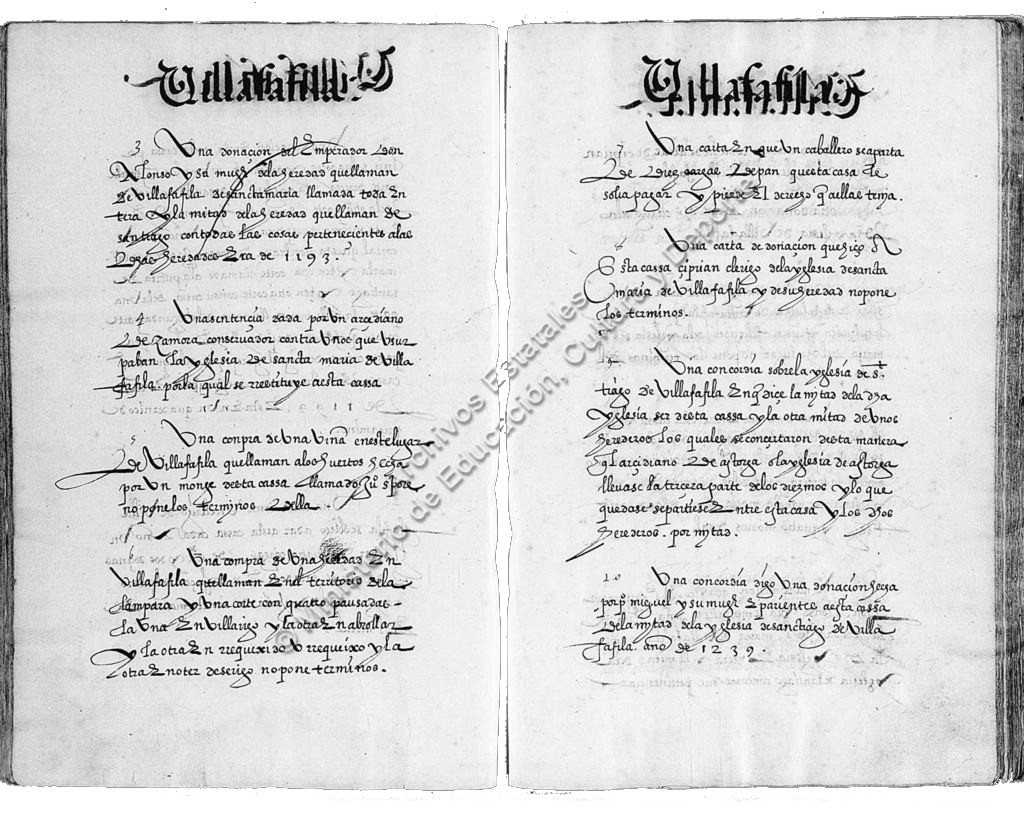 Villafafila
3 Una donaçion del Emperador don
Alonso y su muger dela heredad quellaman
de villafafila de sancta maria llamada toda En
tera y la mitad dela heredad quellaman de
santiago con todas las cosas pertenecientes alas
dhas heredades Era de 1193.
4 Una sentencia dada por Un arcediano
de zamora conservador contra Unos que Usur
paban la yglesia de sancta maria de villa
fafila por la qual se restituye a esta cassa
5 Una compra de Una viña en este lugar
de villafafila quellaman alos huertos hecha
por Un monge desta cassa llamado
no pone los terminos della.
6 Una compra de Una heredad En
villafafila quellaman En el territorio dela
lampara y Una corte con quatro pausadas
la Una En villarigo y la otra En abrollar
y la otra En requexido o rrequeixo y la
otra En oter de serigo no pone terminos.
Villafafila
7 Una carta En que Un caballero se aparta
de diez cargas de pan que esta casa le
solia pagar y pierde El derecho q a ellas tenia.
8 Una carta de donaçion que hiço A
Esta cassa çiprian clerigo dela yglesia de sancta
maria de villafafila y de su heredad no pone
los terminos.
9 Una concordia sobre la yglesia de s.t
tiago de villafafila En q dice la mytad dela dha
yglesia ser desta cassa y la otra mitad de Unos
herederos los quales se conçertaron desta manera
q l arçidiano de astorga o la yglesia de astorga
llevase la tercera parte delos diezmos y lo que
quedase se partiese Entre esta casa y los dhos
herederos por mytad.
10 Una concordia digo Una donacion hecha
por p.o miguel y su mugr E parientes a esta cassa
de la mytad de la yglesia de sanctiago de villa
fafila. año de 1239.
© Ministerio de Educación, Cultura y Deporte
Archivos Estatales